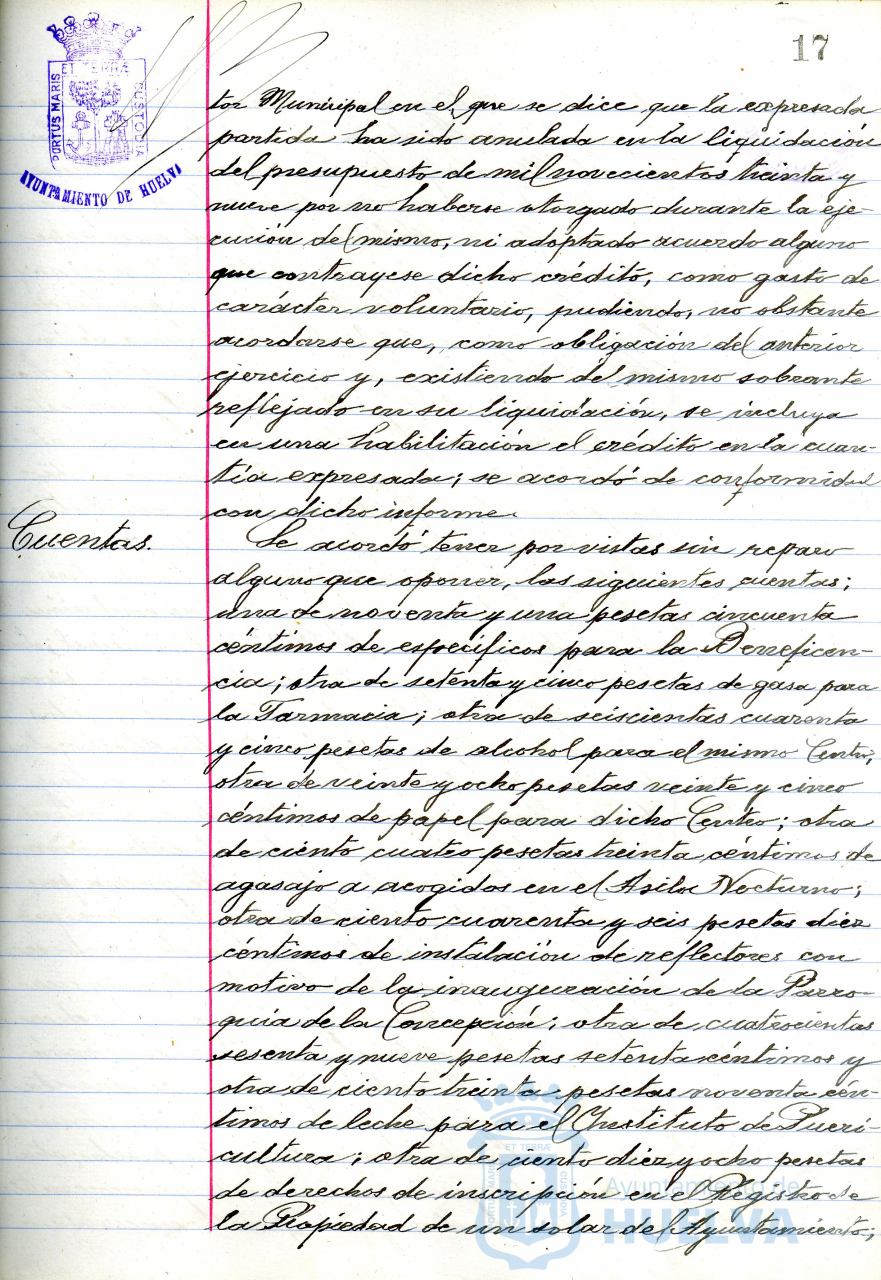 17
PORTUS MARIS ET TERRÆ CUSTODIA
AYUNTAMIENTO DE HUELVA
tor Municipal en el que se dice que la expresada
partida ha sido anulada en la liquidación
del presupuesto de mil novecientos treinta y
nueve por no haberse otorgado durante la eje-
cución del mismo, ni adoptado acuerdo alguno
que contrayese dicho crédito, como gasto de
carácter voluntario, pudiendo, no obstante
acordarse que, como obligación del anterior
ejercicio y, existiendo del mismo sobrante
reflejado en su liquidación, se incluya
en una habilitación el crédito en la cuan-
tía expresada; se acordó de conformidad
con dicho informe.
Cuentas.
Se acordó tener por vistas sin reparo
alguno que oponer, las siguientes cuentas;
una de noventa y una pesetas cincuenta
céntimos de específicos para la Beneficen-
cia; otra de setenta y cinco pesetas de gasa para
la Farmacia; otra de seiscientas cuarenta
y cinco pesetas de alcohol para el mismo Centro,
otra de veinte y ocho pesetas veinte y cinco
céntimos de papel para dicho Centro; otra
de ciento cuatro pesetas treinta céntimos de
agasajo a acogidos en el Asilo Nocturno;
otra de ciento cuarenta y seis pesetas diez
céntimos de instalación de reflectores con
motivo de la inauguración de la Parro-
quia de la Concepción; otra de cuatrocientas
sesenta y nueve pesetas setenta céntimos y
otra de ciento treinta pesetas noventa cén-
timos de leche para el Instituto de Pueri-
cultura; otra de ciento diez y ocho pesetas
de derechos de inscripción en el Registro de
la Propiedad de un solar del Ayuntamiento;
Ayuntamiento de
HUELVA